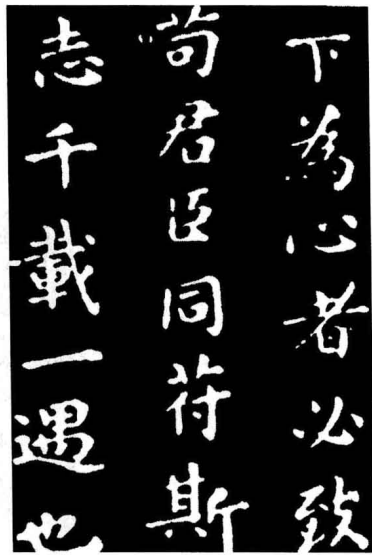 下為心者必致
苟君臣同符斯
志千載一遇也